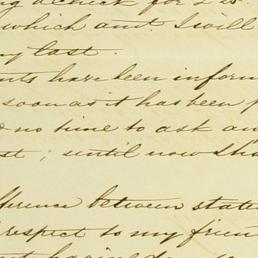 a check for 2
which amt. I will
my last.
have been inform
soon as it has been p
no time to ask an
; until now sha
between state
respect to my frien